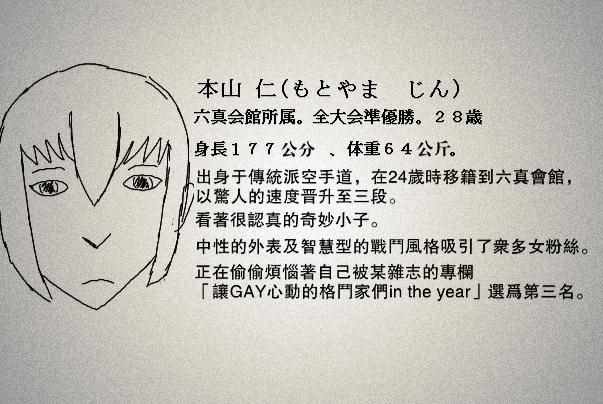 本山 仁(もとやま　じん)
六真会館所属。全大会準優勝。２８歳
身長１７７公分 、体重６４公斤。
出身于傳統派空手道，在24歲時移籍到六真會館，
以驚人的速度晋升至三段。
看著很認真的奇妙小子。
中性的外表及智慧型的戰鬥風格吸引了衆多女粉絲。
正在偷偷煩惱著自己被某雜志的專欄
「讓GAY心動的格鬥家們in the year」選爲第三名。